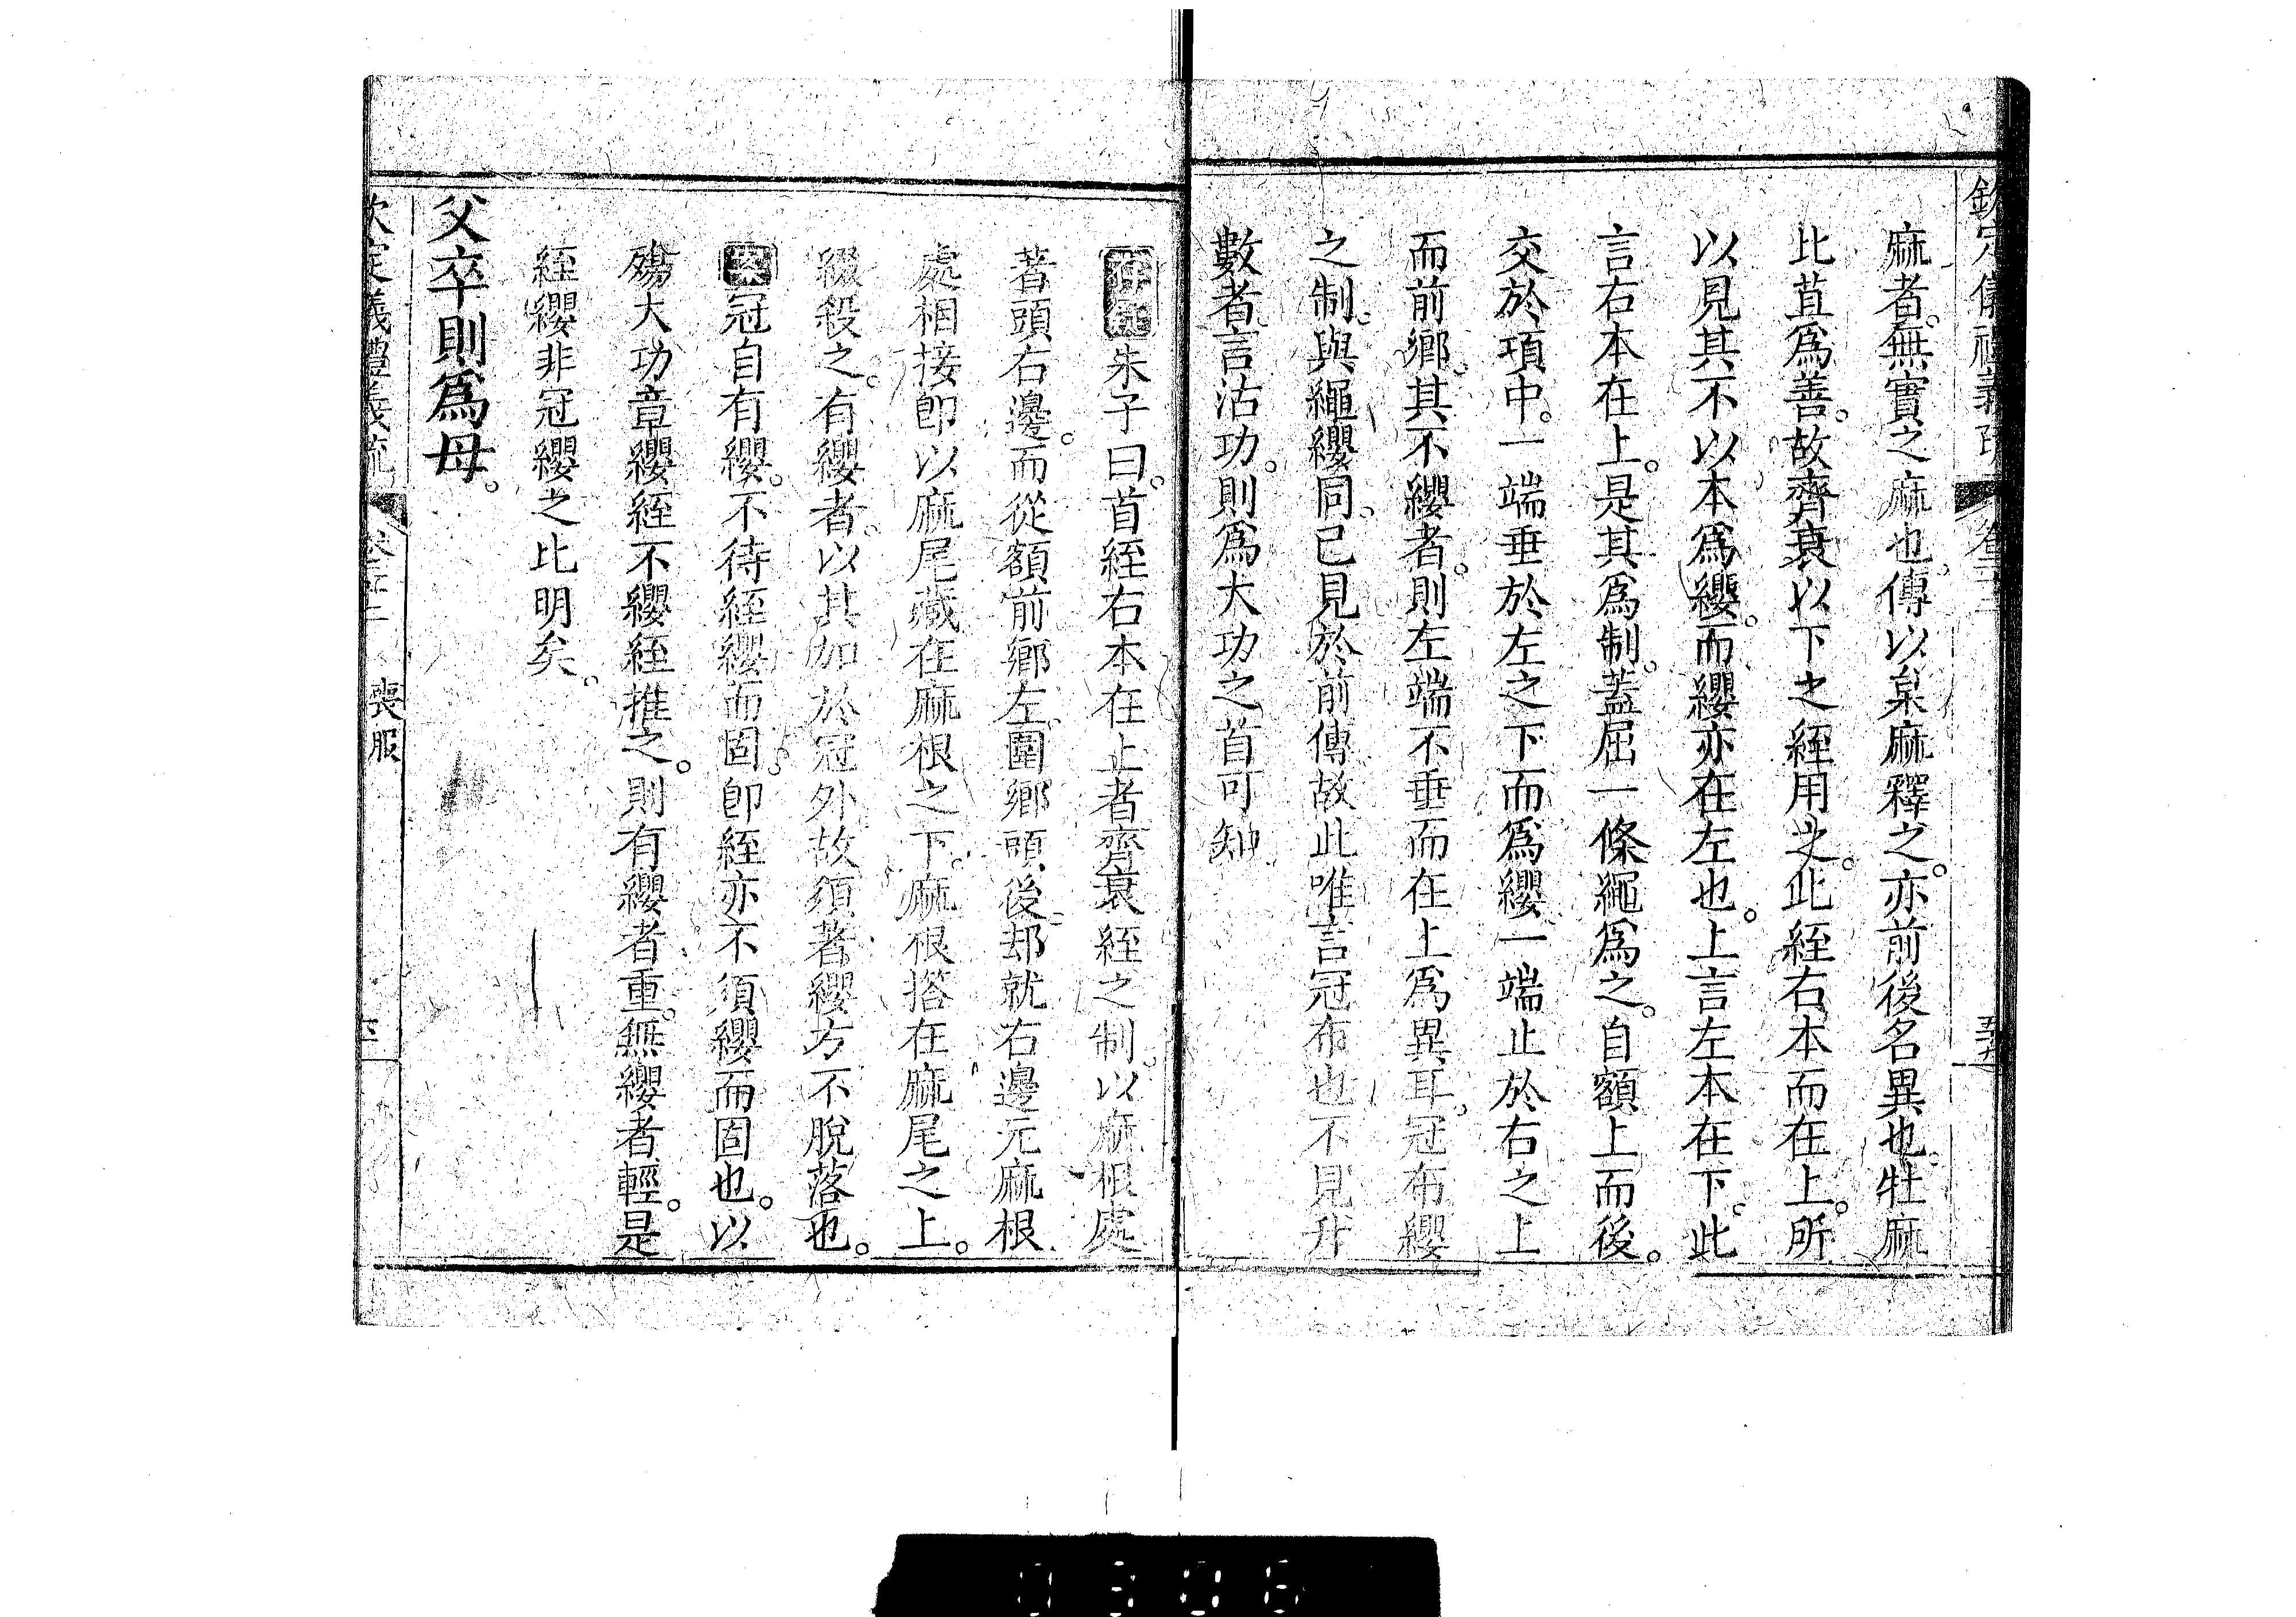 欽定儀禮義疏 卷二十二
麻者。無實之麻也。傳以枲麻釋之。亦前後名異也。牡麻
比苴爲善。故齊衰以下之絰用之。此絰右本而在上。所
以見其不以本爲纓。而纓亦在左也。上言左本在下。此
言右本在上。是其爲制。蓋屈一條繩爲之。自額上而後。
交於項中。一端垂於左之下而爲纓。一端止於右之上
而前鄉。其不纓者。則左端不垂而在上爲異耳。冠布纓
之制。與繩纓同。已見於前傳。故此唯言冠布也。不見升
數者。言沽功。則爲大功之首可知。
存疑朱子曰。首絰右本在上者。齊衰絰之制。以麻根處
著頭右邊。而從額前鄉左。圍鄉頭後。却就右邊元麻根
處相接。卽以麻尾藏在麻根之下。麻根搭在麻尾之上。
綴殺之。有纓者。以其加於冠外。故須著纓方不脫落也。
案冠自有纓。不待絰纓而固。卽絰亦不須纓而固也。以
殤大功章纓絰不纓絰推之。則有纓者重。無纓者輕。是
絰纓非冠纓之比明矣。
父卒則爲母。
欽定儀禮義疏 喪服
0306